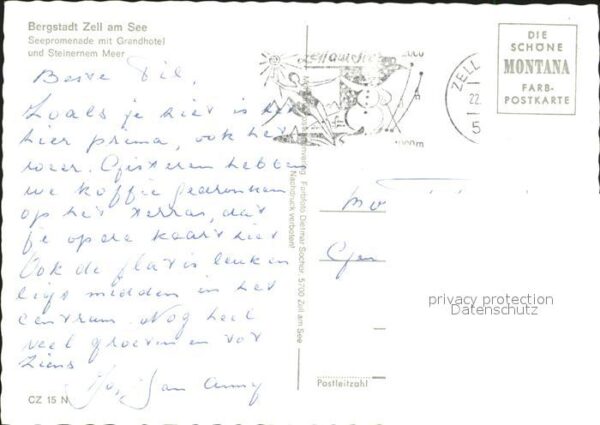 Bergstadt Zell am See
Seepromenade mit Grandhotel
und Steinernem Meer
Beste
Zoals je hier is het
hier prima, ook het
weer. Gisteren hebben
we koffie gedronken
op het terras, dat
je op de kaart
Ook de flat is leuk en
ligt midden in het
centrum. Nog heel
veel groeten en tot
ziens
Jan Anny
CZ 15 N
Farbfoto Dietmar Sochor, 5700 Zell am See
Nachdruck verboten!
Zell am See
2000
ZELL
22.
5
DIE
SCHÖNE
MONTANA
FARB-
POSTKARTE
privacy protection
Datenschutz
Postleitzahl